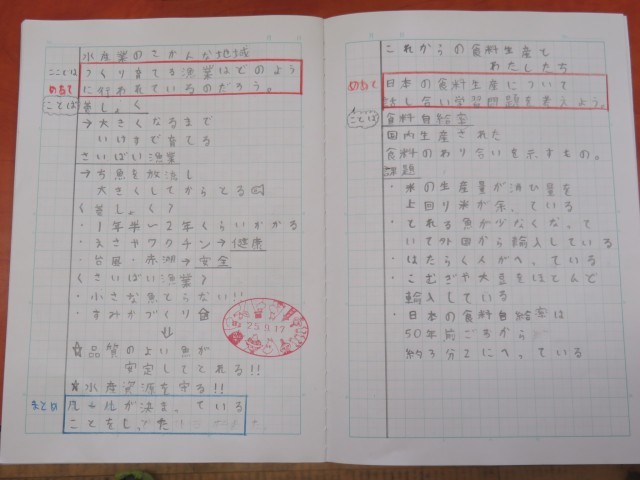 水産業のさかんな地域
つくり育てる漁業はどのよう
めあて
に行われているのだろう。
ことば
養しょく
→大きくなるまで
いけすで育てる
さいばい漁業
→ち魚を放流し
大きくしてからとる
〈養しょく〉
・1年半〜2年くらいかかる
・えさやワクチン→健康
・台風・赤潮→安全
〈さいばい漁業〉
・小さな魚とらない!!
・すみかづくり
25.9.17
☆品質のよい魚が
安定してとれる!!
☆水産資源を守る!!
まとめ
が決まっている
ことをしった
これからの食料生産と
わたしたち
めあて
日本の食料生産について
話し合い学習問題を考えよう。
ことば
食料自給率
国内生産された
食料のわり合いを示すもの。
課題
・米の生産量が消ひ量を
上回り米が余っている
・とれる魚が少なくなって
いて外国から輸入している
・はたらく人がへっている
・こむぎや大豆をほとんど
輸入している
・日本の食料自給率は
50年前ごろから
約3分2にへっている